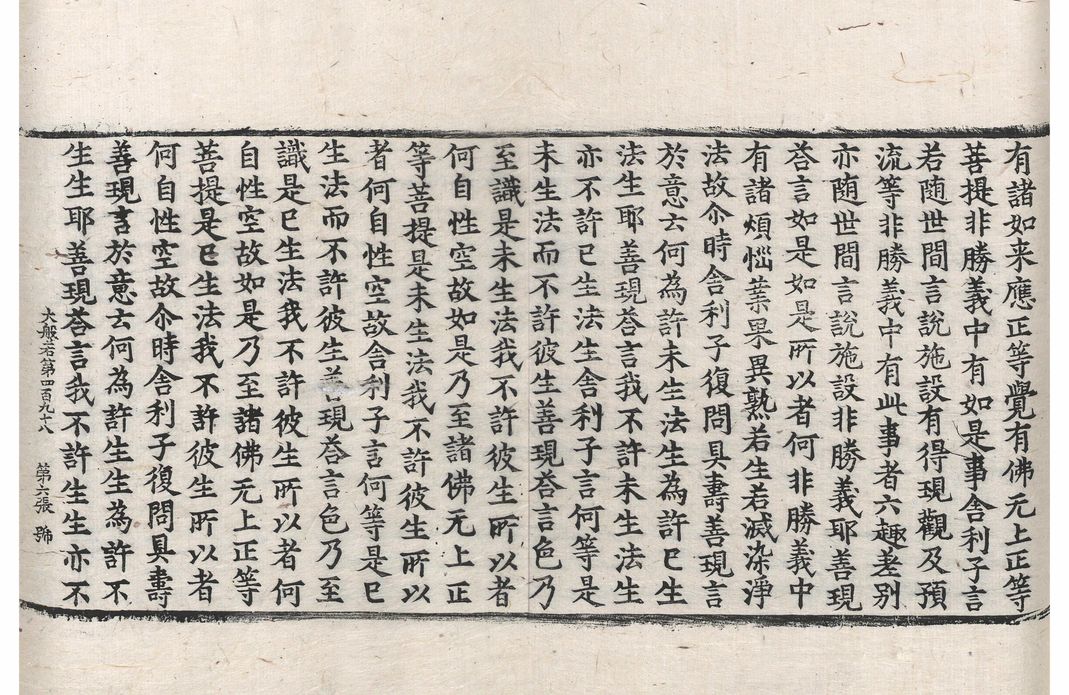 有諸如来應正等覺有佛无上正等
菩提非勝義中有如是事舎利子言
若随世間言說施設有得現觀及預
流等非勝義中有此事者六趣差別
亦随世間言說施設非勝義耶善現
荅言如是如是所以者何非勝義中
有諸煩惱業果異熟若生若滅染淨
法故尒時舎利子復問具壽善現言
於意云何為許未生法生為許已生
法生耶善現荅言我不許未生法生
亦不許已生法生舎利子言何等是
未生法而不許彼生善現荅言色乃
至識是未生法我不許彼生所以者
何自性空故如是乃至諸佛无上正
等菩提是未生法我不許彼生所以
者何自性空故舎利子言何等是已
生法而不許彼生善現荅言色乃至
識是已生法我不許彼生所以者何
自性空故如是乃至諸佛无上正等
菩提是已生法我不許彼生所以者
何自性空故尒時舎利子復問具壽
善現言於意云何為許生生為許不
生生耶善現荅言我不許生生亦不
大般若第四百九十八 第六張 號